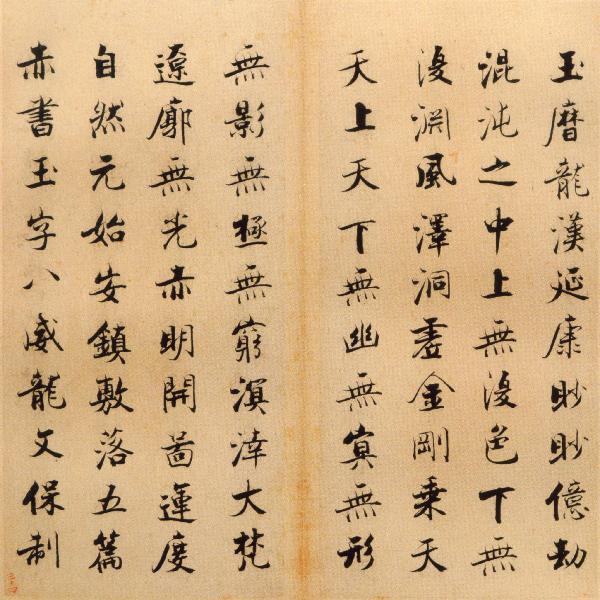 玉曆龍漢延康眇眇億劫
混沌之中上無復色下無
復淵風澤洞虛金剛乘天
天上天下無幽無冥無形
無影無極無窮溟涬大梵
遼廓無光赤明開圖運度
自然元始安鎮敷落五篇
赤書玉字八威龍文保制